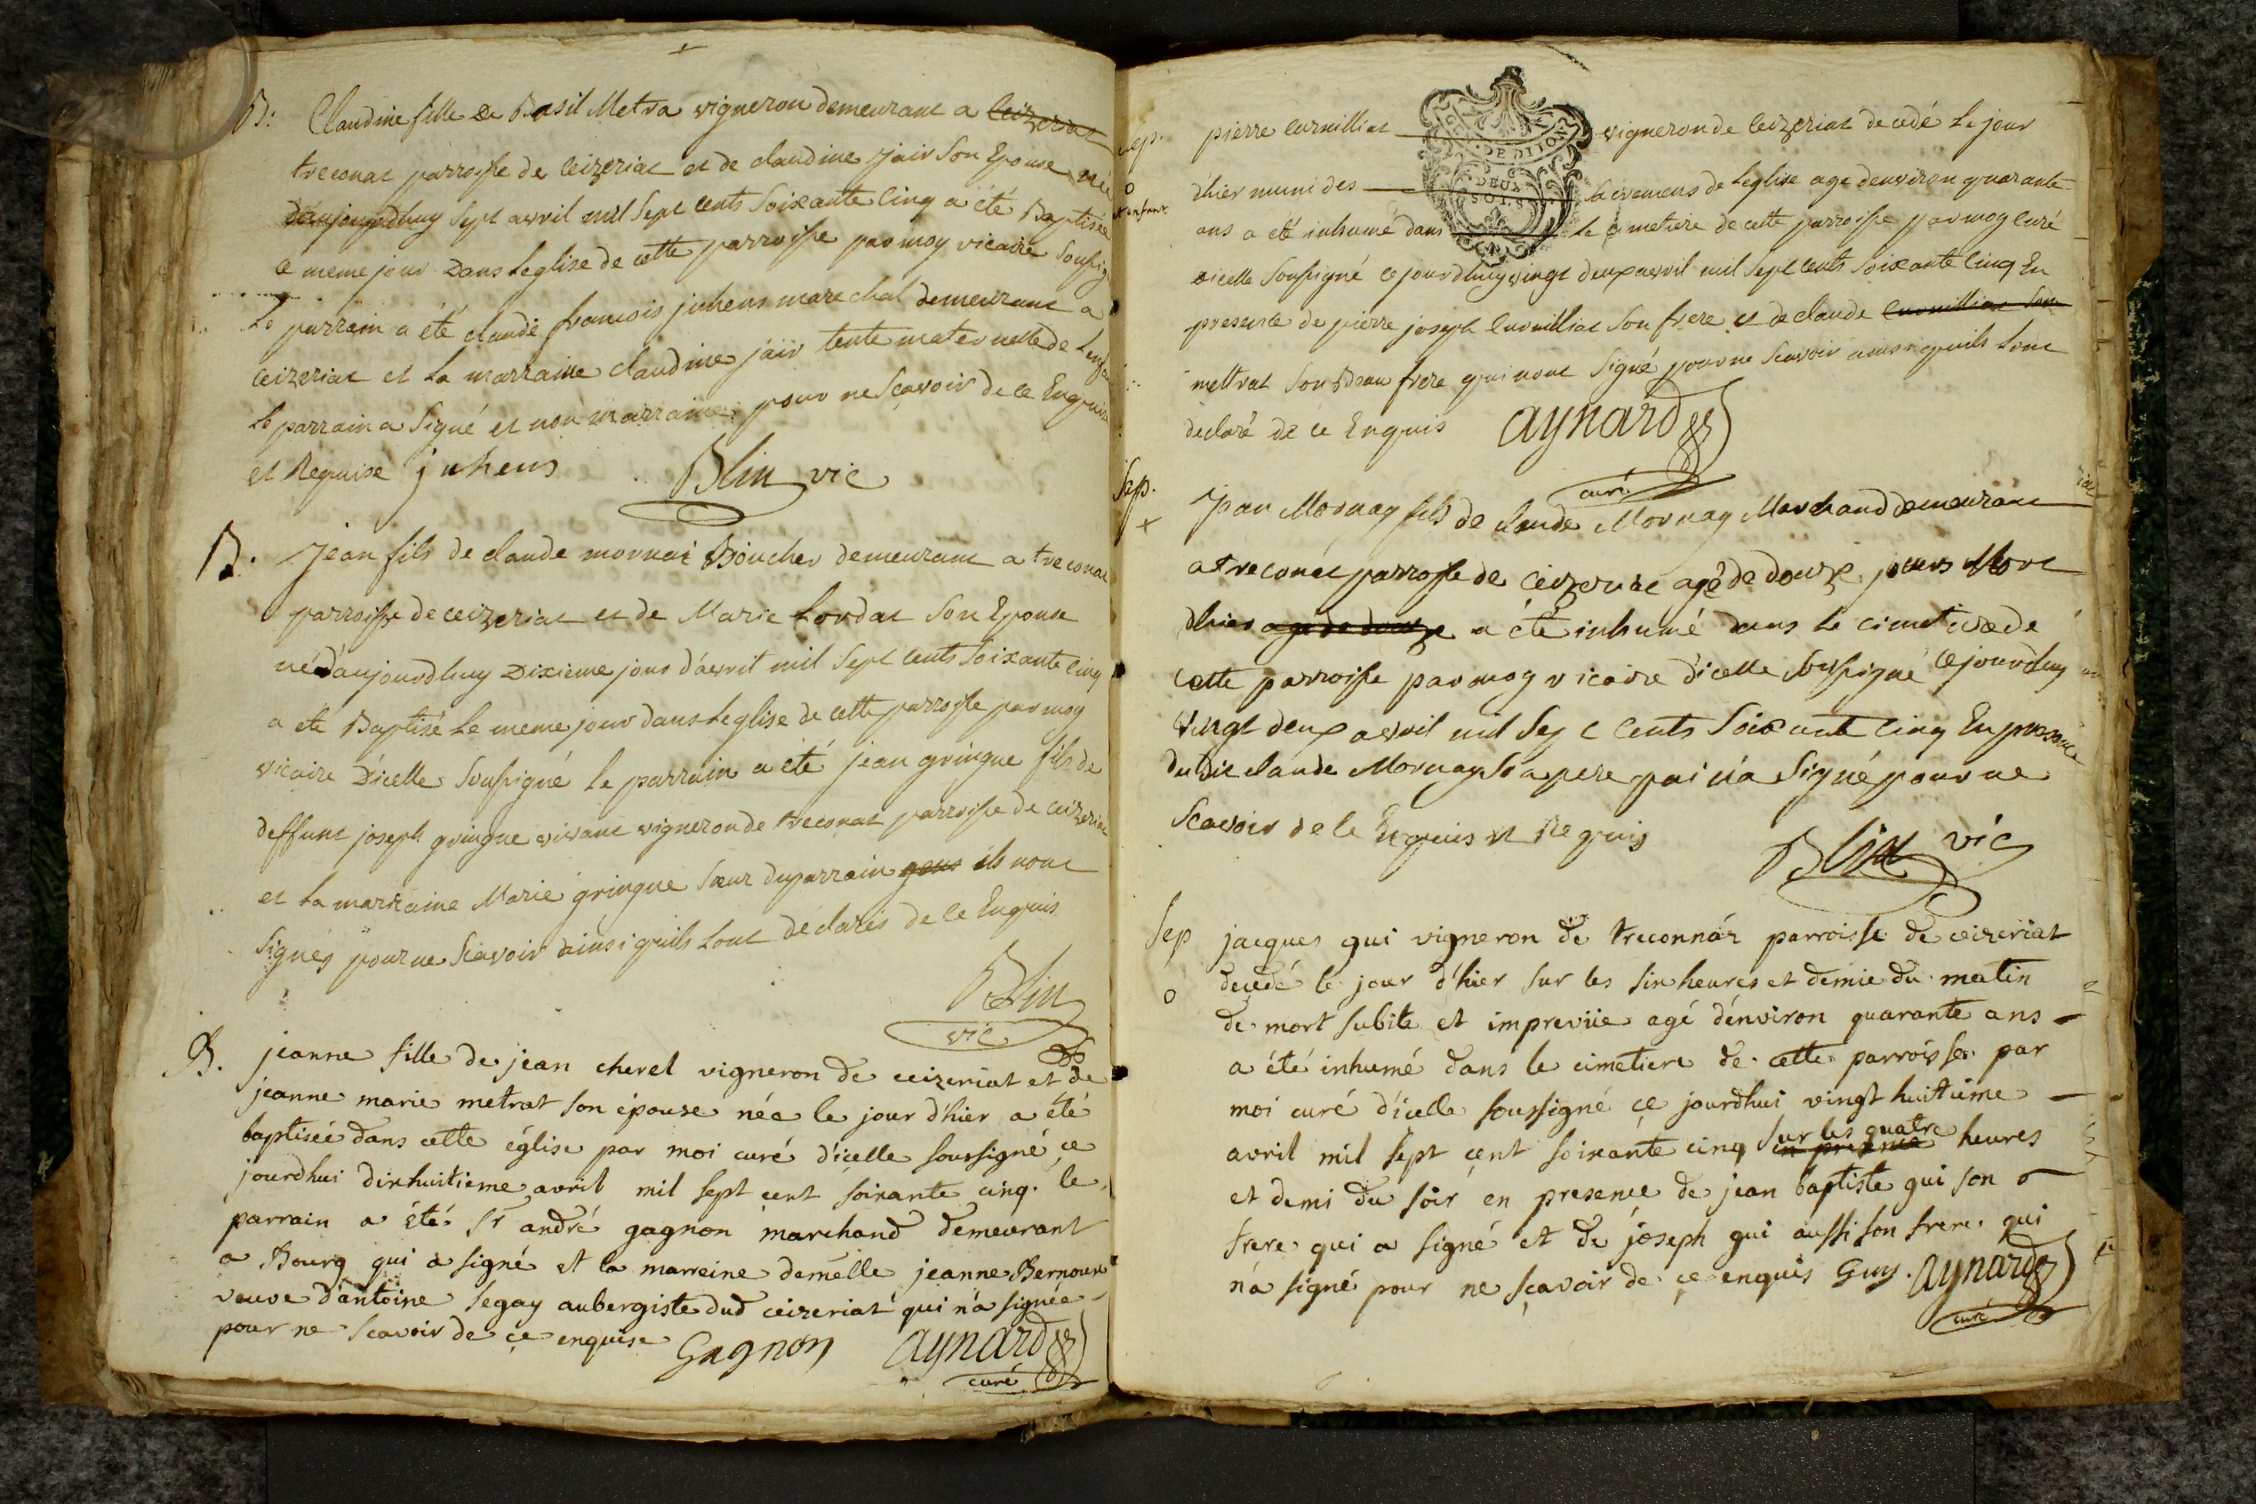 B: Claudine fille de Basil Metra vigneron demeurant a Ceizeriat
treconat parroisse de Ceizeriat et de claudine jair son Epouse née
daujourdhuy sept avril mil sept cents soixante cinq a été Baptisée
le meme jour Dans leglise de cette parroisse par moy vicaire soussig
le parrain a été claude francois juhens marechal demeurant a
Ceizeriat et la marraine claudine jair tente maternelle de
le parrain a signé et non marraine pour ne sçavoir de ce Enquise
et Requise juhens Blin vic
B. Jean fils de claude mornai Boucher demeurant a treconat
parroisse de ceizeriat et de Marie Lordat son Epouse
né d'aujourdhuy Dixieme jour d'avril mil sept cents soixante cinq
a ete Baptisé le meme jour dans leglise de cette parroisse par moy
vicaire D'icelle soussigné le parrain a été jean gringue fils de
deffunt joseph gringue vivant vigneron de treconat parroisse de ceizeriat
et la marraine Marie gringue sœur du parrain ils nont
signés pour ne scavoir ainsi quils lont declarés de ce Enquis
Blin
vic
B. jeanne fille de jean chevel vigneron de ceizeriat et de
jeanne marie metrat son épouse née le jour d'hier a été
baptisée dans cette église par moi curé d'icelle soussigné ce
jourdhui dixhuitieme avril mil sept cent soixante cinq. le
parrain a été Sr andré gagnon marchand demeurant
a Bourg qui a signé et la marreine demelle jeanne Bernoux
veuve d'antoine segay aubergiste dud ceizeriat qui n'a signée
pour ne sçavoir de ce enquise Gagnon aynard
curé
Sep. pierre Curnilliat vigneron de Ceizeriat decedé le jour
o d'hier muni des sacremens de leglise age denviron quarante
enfant
GEN. DE DIJON
DEUX
SOLS
ans a eté inhumé dans le cimetiere de cette parroisse par moy Curé
dicelle soussigné ce jourdhuy vingt deux avril mil sept cents soixante cinq En
presence de pierre joseph Curnilliat son frere et de claude Curnilliat son
mettrat son Beau frere qui nont signé pour ne scavoir ainsi quils lont
declaré de ce Enquis aynard
curé
Sep. Jean Mornay fils de claude Mornay Marchand demeurant
+
a treconat parroisse de Ceizeriat agé de douze jours Mort
dhier age de douze a été inhumé dans le cimetiere de
cette parroisse par moy vicaire d'icelle soussigné Cejourdhuy
vingt deux avril mil sept cents soixante cinq En presence
dudit claude Mornay son pere qui n'a signé pour ne
scavoir de ce Enquis et Requis
Blin vic
Sep jacques gui vigneron de treconnat parroisse de ceizeriat
o decedé le jour d'hier sur les six heures et demie du matin
de mort subite et imprevüe agé d'environ quarante ans
a été inhumé dans le cimetiere de cette parroisse par
moi curé d'icelle soussigné ce jourdhui vingt huitieme
avril mil sept cent soixante cinq en presence sur les quatre heures
et demi du soir en presence de jean baptiste gui son
frere qui a signé et de joseph gui aussi son frere qui
n'a signé pour ne sçavoir de ce enquis Guy. aynard
curé